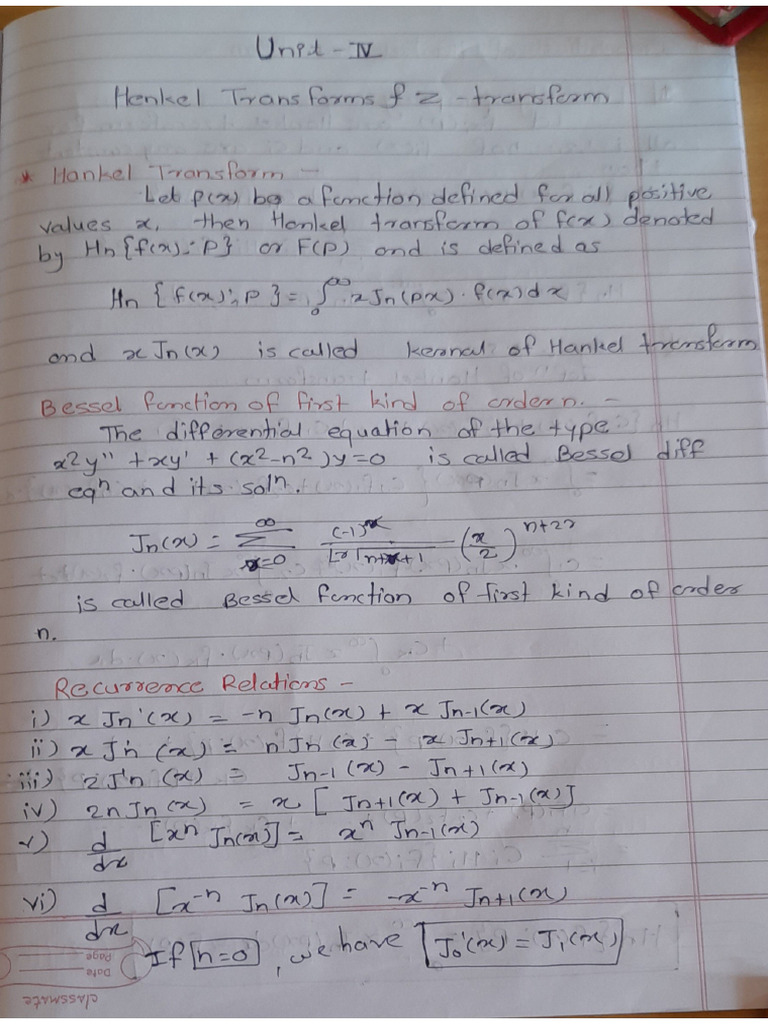 Unit - IV
Henkel Transforms & Z - transform
* Hankel Transform -
Let f(x) be a function defined for all positive
values x, then Hankel transform of f(x) denoted
by Hn {f(x); P} or F(P) and is defined as
Hn { f(x); P } = ∫₀^∞ x Jn(px) · f(x) dx
and x Jn(x) is called kernal of Hankel transform
Bessel function of first kind of order n. -
The differential equation of the type
x²y'' + xy' + (x² - n²)y = 0 is called Bessel diff
eqⁿ and its solⁿ.
Jn(x) = Σ_{r=0}^{∞} (-1)^r / (⌈r ⌈n+r+1) (x/2)^{n+2r}
is called Bessel function of first kind of order
n.
Recurrence Relations -
i) x Jn'(x) = -n Jn(x) + x Jn-1(x)
ii) x J'n (x) = n Jn (x) - x Jn+1(x)
iii) 2J'n (x) = Jn-1 (x) - Jn+1(x)
iv) 2n Jn(x) = x [ Jn+1(x) + Jn-1(x)]
v) d/dx [xⁿ Jn(x)] = xⁿ Jn-1(x)
vi) d/dx [x⁻ⁿ Jn(x)] = -x⁻ⁿ Jn+1(x)
If n=0, we have J₀'(x) = J₁(x)
classmate
Date
Page